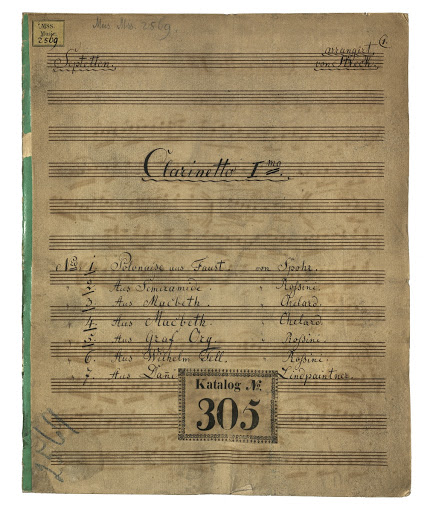 MSS.
Music
2569
Mus. Mss. 2569
1.
Septetten.
arrangirt
von
Clarinetto Imo.
No. 1. Polonaise aus Faust. von Spohr.
" 2. Aus Semiramide. " Roßini.
" 3. Aus Macbeth. " Chelard.
" 4. Aus Macbeth. " Chelard.
" 5. Aus Graf Ory. " Roßini.
" 6. Aus Wilhelm Tell. " Roßini.
" 7. Aus Lindpaintner.
Katalog No.
305
2569